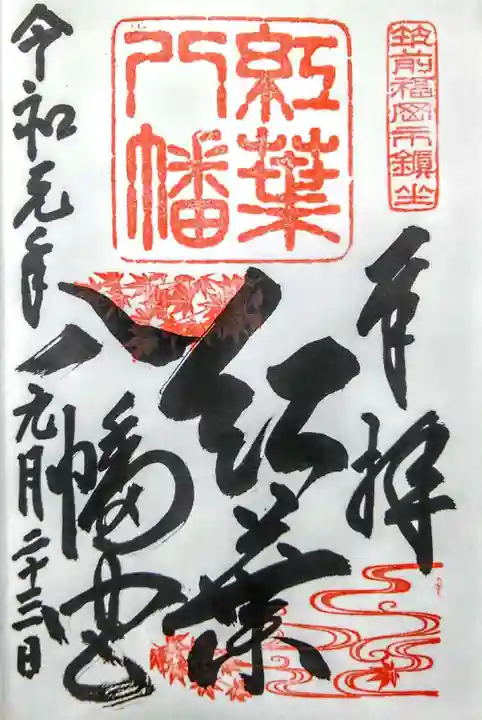 筑前福岡市鎮坐
奉拝
紅葉
八幡
紅葉
八幡宮
令和元年 月二十三日